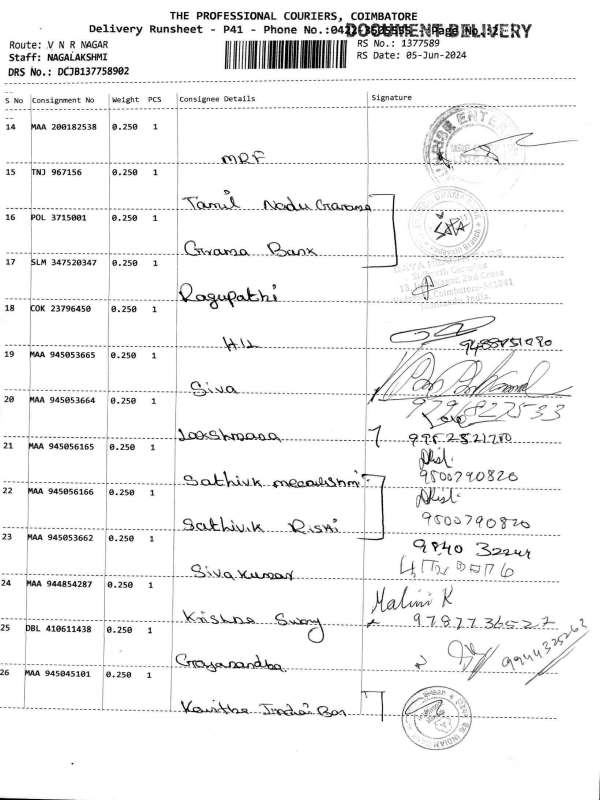 THE PROFESSIONAL COURIERS, COIMBATORE
Delivery Runsheet - P41 - Phone No.:042
DOCUMENT DELIVERY
Route: V N R NAGAR
RS No.: 1377589
Staff: NAGALAKSHMI
RS Date: 05-Jun-2024
DRS No.: DCJB137758902
S No Consignment No Weight PCS Consignee Details Signature
14 MAA 200182538 0.250 1
MRF
15 TNJ 967156 0.250 1
Tamil Nadu Grama
16 POL 3715001 0.250 1
Grama Bank
17 SLM 347520347 0.250 1
Ragupathi
18 COK 23796450 0.250 1
HIL
19 MAA 945053665 0.250 1
Siva
20 MAA 945053664 0.250 1
9952821710
21 MAA 945056165 0.250 1
Sathivk meenakshmi
9500790820
22 MAA 945056166 0.250 1
Sathivik Rishi
9500790820
23 MAA 945053662 0.250 1
9840
Sivakumar
24 MAA 944854287 0.250 1
Malini K
Krishna Swamy
9787736527
25 DBL 410611438 0.250 1
9944325262
26 MAA 945045101 0.250 1
Kavitha Indian Ban